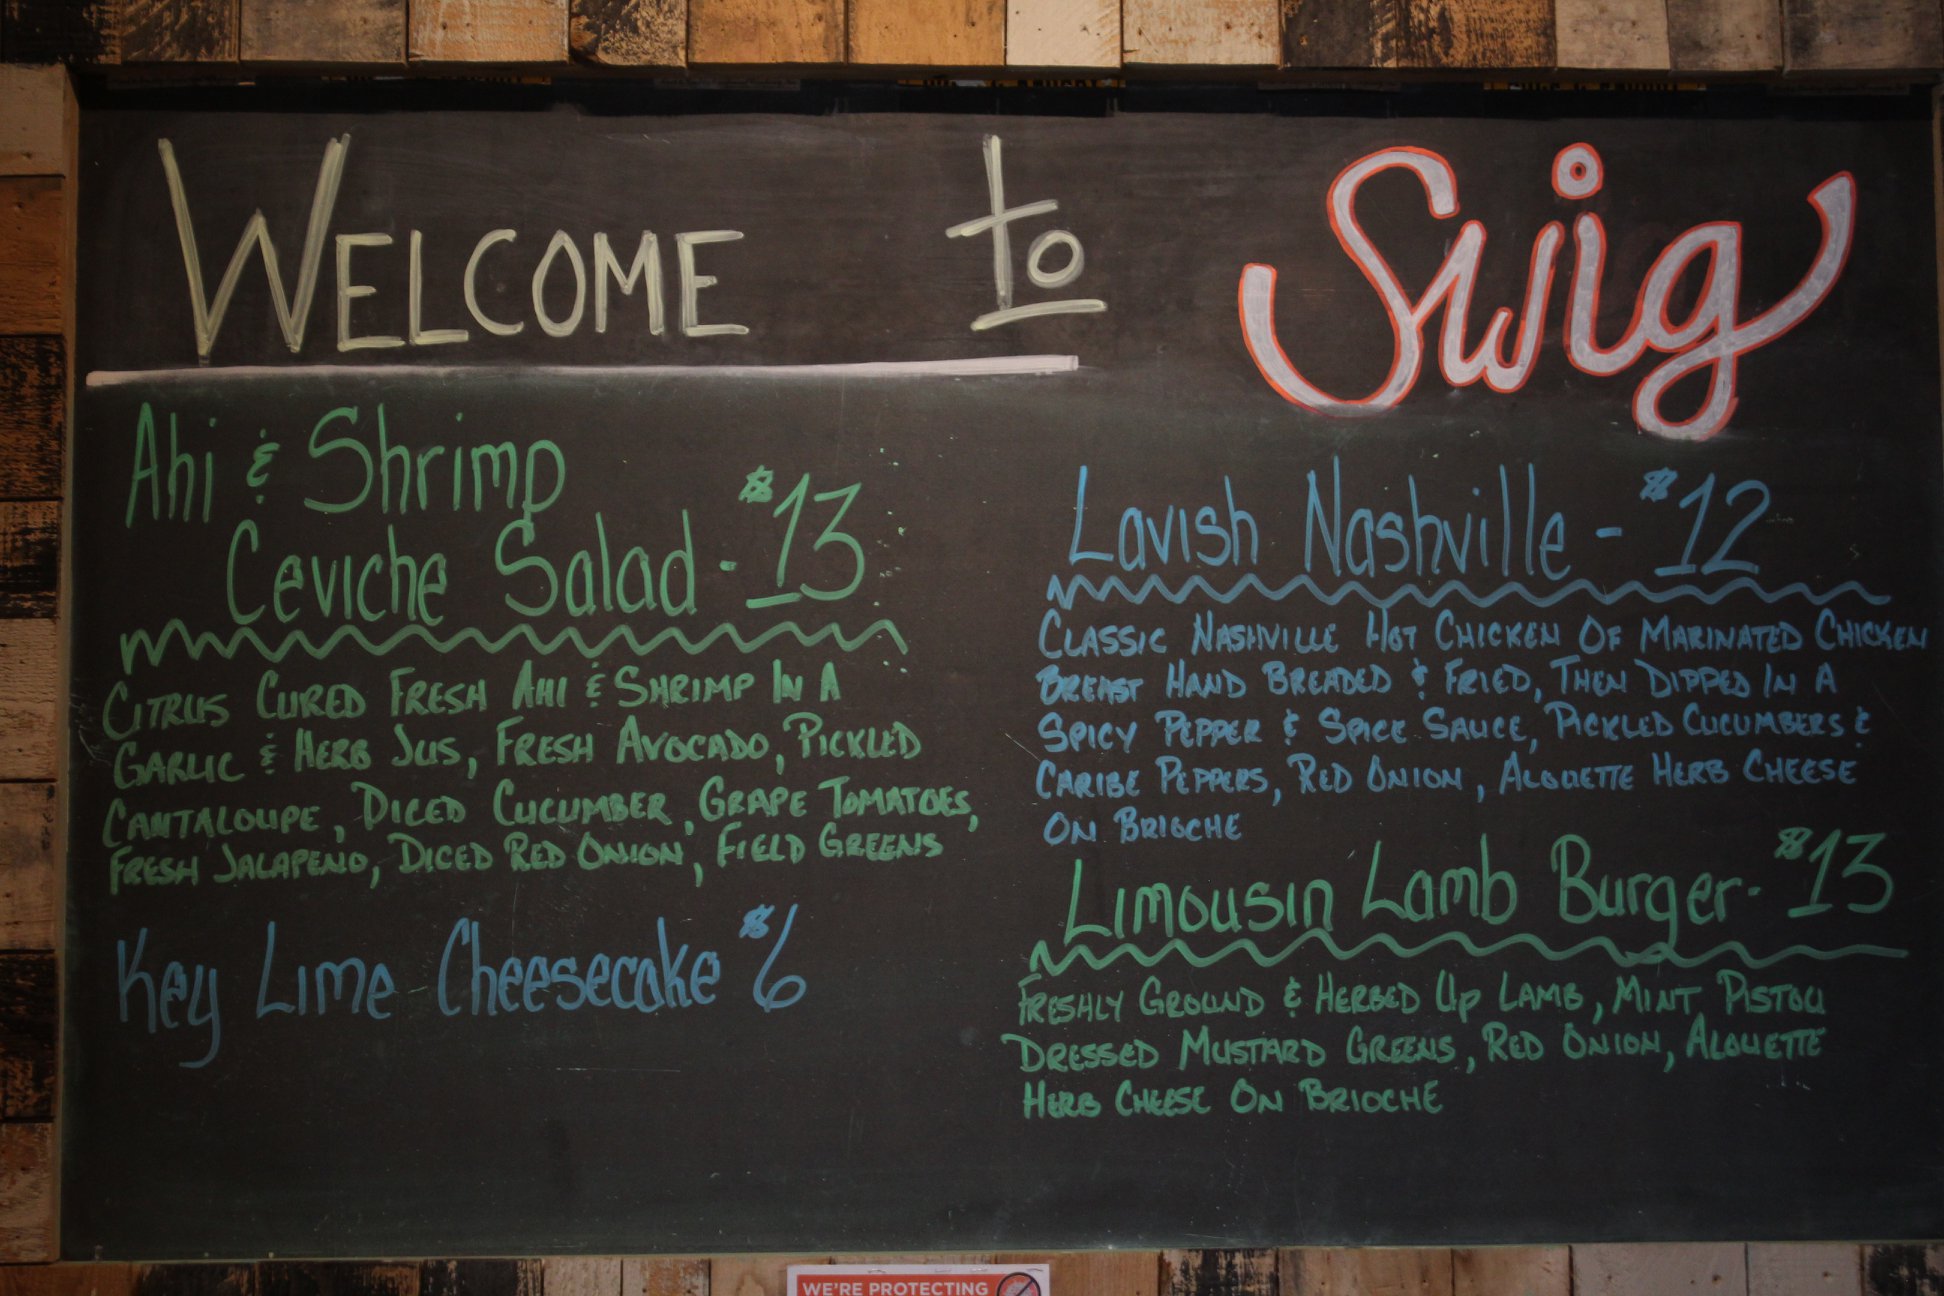 WELCOME to Swig
Ahi & Shrimp
Ceviche Salad - $13
CITRUS CURED FRESH AHI & SHRIMP IN A
GARLIC & HERB JUS, FRESH AVOCADO, PICKLED
CANTALOUPE, DICED CUCUMBER, GRAPE TOMATOES,
FRESH JALAPENO, DICED RED ONION, FIELD GREENS
Key Lime Cheesecake $6
Lavish Nashville - $12
CLASSIC NASHVILLE HOT CHICKEN OF MARINATED CHICKEN
BREAST HAND BREADED & FRIED, THEN DIPPED IN A
SPICY PEPPER & SPICE SAUCE, PICKLED CUCUMBERS &
CARIBE PEPPERS, RED ONION, ALOUETTE HERB CHEESE
ON BRIOCHE
Limousin Lamb Burger - $13
FRESHLY GROUND & HERBED UP LAMB, MINT PISTOU
DRESSED MUSTARD GREENS, RED ONION, ALOUETTE
HERB CHEESE ON BRIOCHE
WE'RE PROTECTING